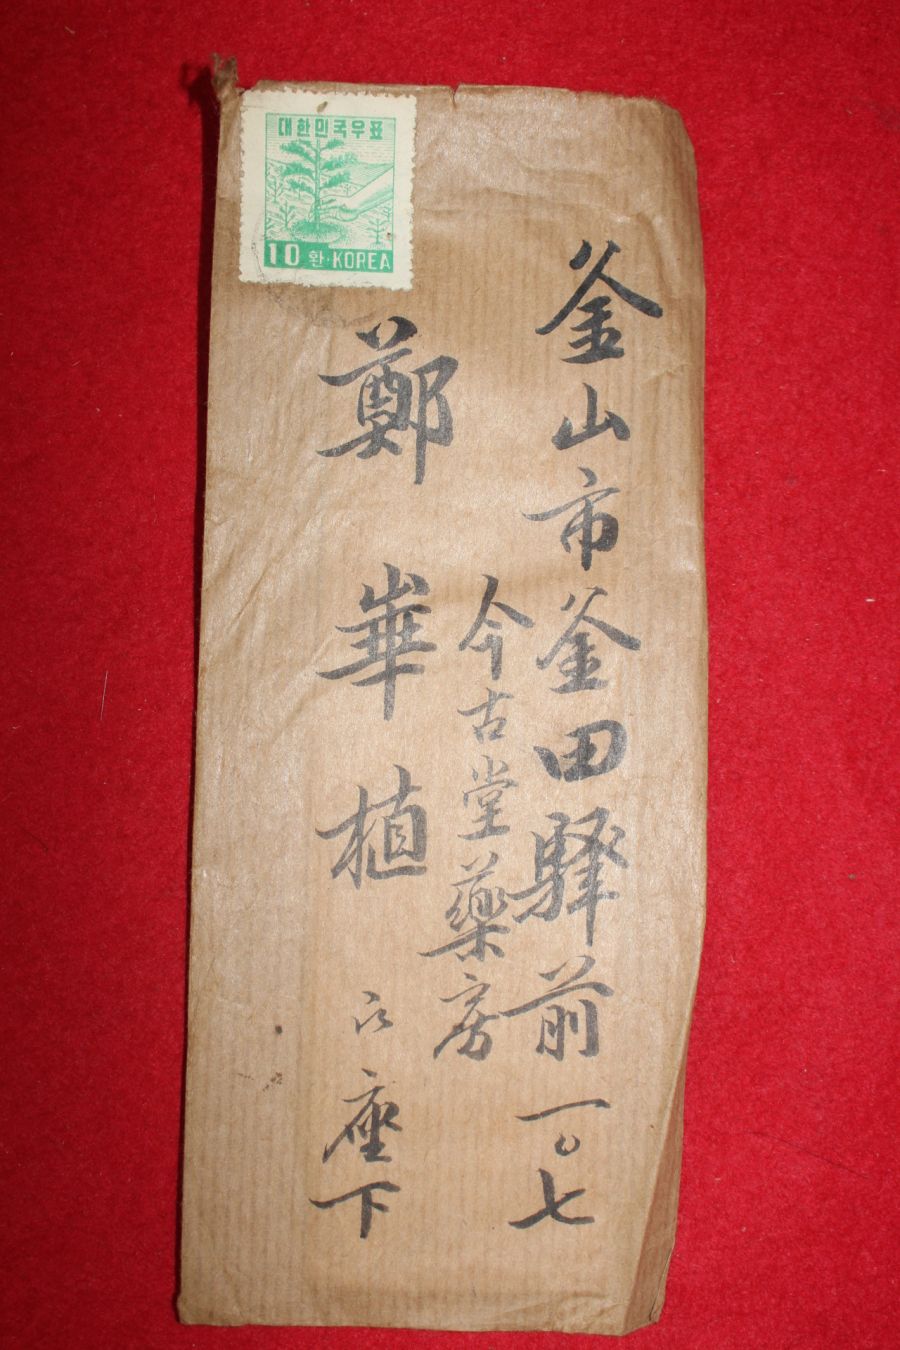 대한민국우표
10 환·KOREA
釜山市釜田驛前一〇七
今古堂藥房
鄭華植 座下